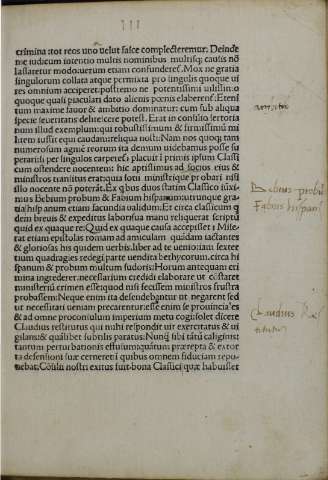 III
crimina tot reos uno uelut fasce complecteremur: Deinde
me iudicum intentio multis nominibus multisq; causis nō
lassaretur modo: uerum etiam confunderet̃. Mox ne gratia
singulorum collata atque permixta pro singulis quoque ui
res omnium acciperet: postremo ne potentissimi uilissimo
quoque quasi piaculari dato alienis pœnis elaberent̃: Eteni
tum maxime fauor & ambitio dominatur: cum sub aliqua
specie seueritatis delitescere potest. Erat in consilio sertoria
num illud exemplum: qui robustissimum & firmissimū mi
litem iussit equi caudam: reliqua nosti: Nam nos quoq; tam
numerosum agmē reorum ita demum uidebamus posse su
perari: si per singulos carperet̃: placuit ī primis ipsum Classi
cum ostendere nocentem: hic aptissimus ad socios eius &
ministros transitus erat: quia socii ministrique probari nisi
illo nocente nō poterāt. Ex qbus duos statim Classico iūxi
mus Bebium probum & Fabium hispanum: utrunque gra
tia: hispanum etiam facundia ualidum: Et circa classicum q
dem breuis & expeditus labor: sua manu reliquerat scriptū
quid ex quaque re: Quid ex quaque causa accepisset: Mise
rat etiam epistolas romam ad amiculam quādam iactantes
& gloriosas his quidem uerbis: liber ad te uenio: iam sexter
tium quadragies redegi parte uendita bethycorum. circa hi
spanum & probum multum sudoris: Horum antequam cri
mina ingrederer: necessarium credidi elaborare ut cōstaret
ministeriū crimen esse: quod nisi fecissem ministros frustra
probassem: Neque enim ita defendebantur ut negarent sed
ut necessitati ueniam precarentur: esse enim se prouinciales
& ad omne proconsulum imperium metu cogi: solet dicere
Claudius restitutus qui mihi respondit uir exercitatus & ui
gilans: & quālibet subitis paratus: Nunq̄ sibi tātū caliginis:
tantum perturbationis effusum: quātum: prærepta & extor
ta defensioni suæ cerneret: ī quibus omnem fiduciam repo
nebat: Cōsilii nostri exitus fuit: bona Classici quæ habuisset
Bebius probus
Fabius hispan
Claudius Re
titutus